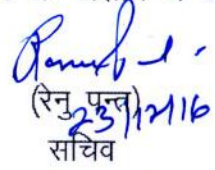 (रेनु पन्त)
23/12/16
सचिव